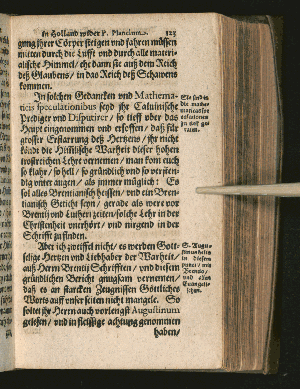 in Holland wider P. Plancium. 123
gung ihrer Cörper steigen und fahren müssen
mitten durch die Lufft und durch alle materi-
alische Himmel, ehe dann sie auß dem Reich
deß Glaubens, in das Reich deß Schawens
kommen.
In solchen Gedancken und Mathema-
ticis speculationibus seyd ihr Calvinische
Prediger und Disputirer, so tieff uber das
Haupt eingenommen und ersoffen, daß für
grosser Erstarrung deß Hertzens, ihr nicht
könde die Himlische Warheit dieser hohen
trostreichen Lehre vernemen, man kom euch
so klahr, so hell, so gründlich und so verstän-
dig unter augen, als immer müglich. Es
sol alles Brentianisch heissen, und ein Bren-
tianisch Geticht seyn, gerade als were vor
Brentij und Lutheri zeiten, solche Lehr in der
Christenheit unerhört, und nirgend in der
Schrifft zu finden.
Aber ich zweiffel nicht, es werden Gott-
selige Hertzen und Liebhaber der Warheit,
auß Herrn Brentij Schrifften, und diesem
gründlichen Bericht gnugsam vernemen,
daß es an starcken Zeugnissen Göttliches
Worts auff unser seiten nicht mangele. So
soltet ihr Herrn auch vorlengst Augustinum
gelesen, und in fleissige achtung genommen
haben,
Sie sind in
die mathe-
maticas spe
culationes
zu tieff ge-
raten.
S. Augu-
stinus helts
in diesem
punct, mit
Brentio,
und allen
Evangeli-
schen.